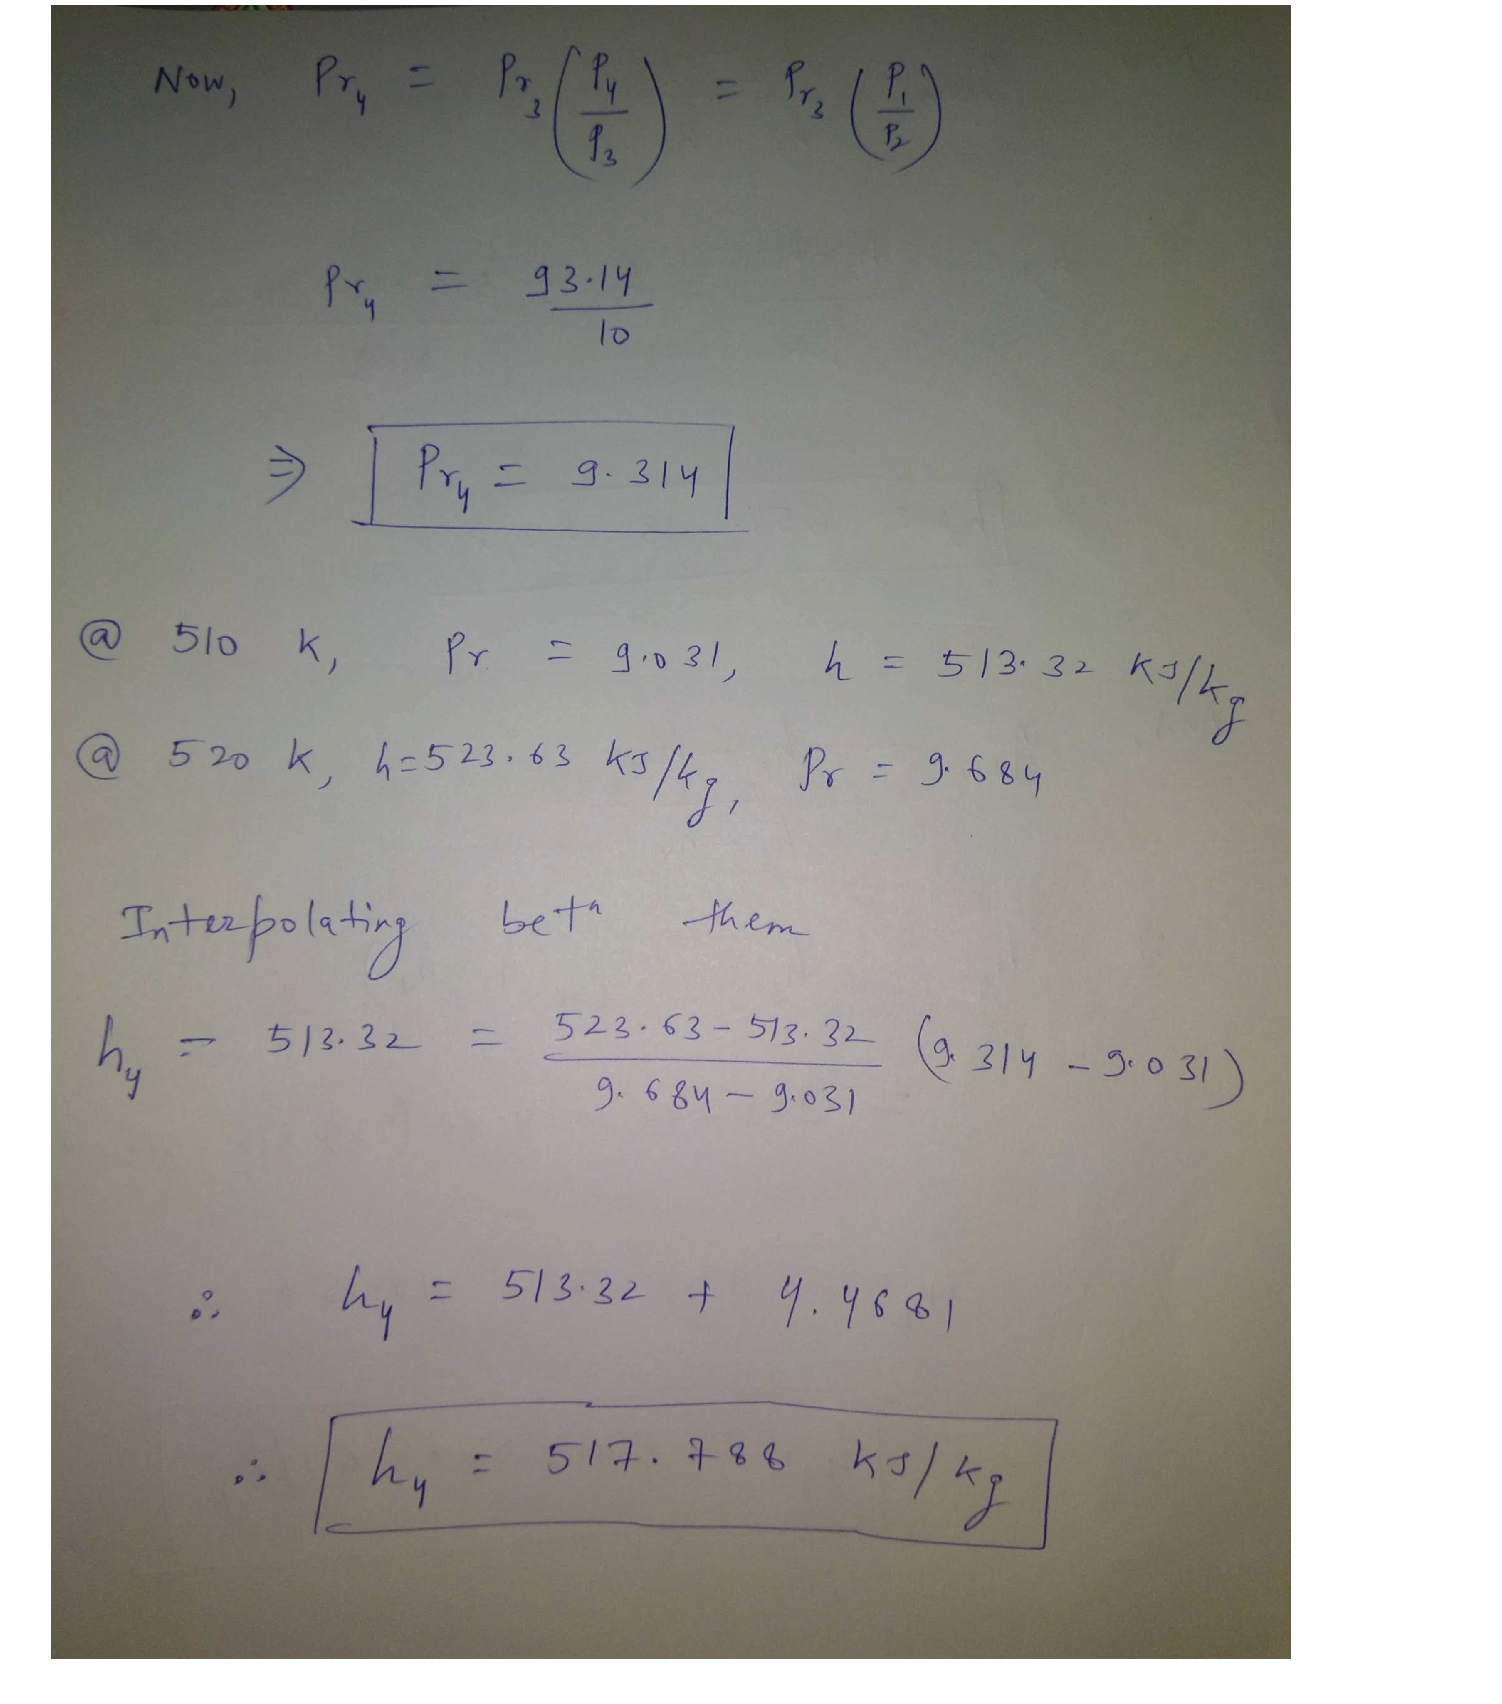 Now, Pr4 = Pr3 (P4/P3) = Pr3 (P1/P2)
Pr4 = 93.14/10
⇒ Pr4 = 9.314
@ 510 K, Pr = 9.031, h = 513.32 KJ/kg
@ 520 K, h=523.63 KJ/kg, Pr = 9.684
Interpolating betn them
h4 - 513.32 = (523.63 - 513.32)/(9.684 - 9.031) (9.314 - 9.031)
∴ h4 = 513.32 + 4.4681
∴ h4 = 517.788 KJ/kg